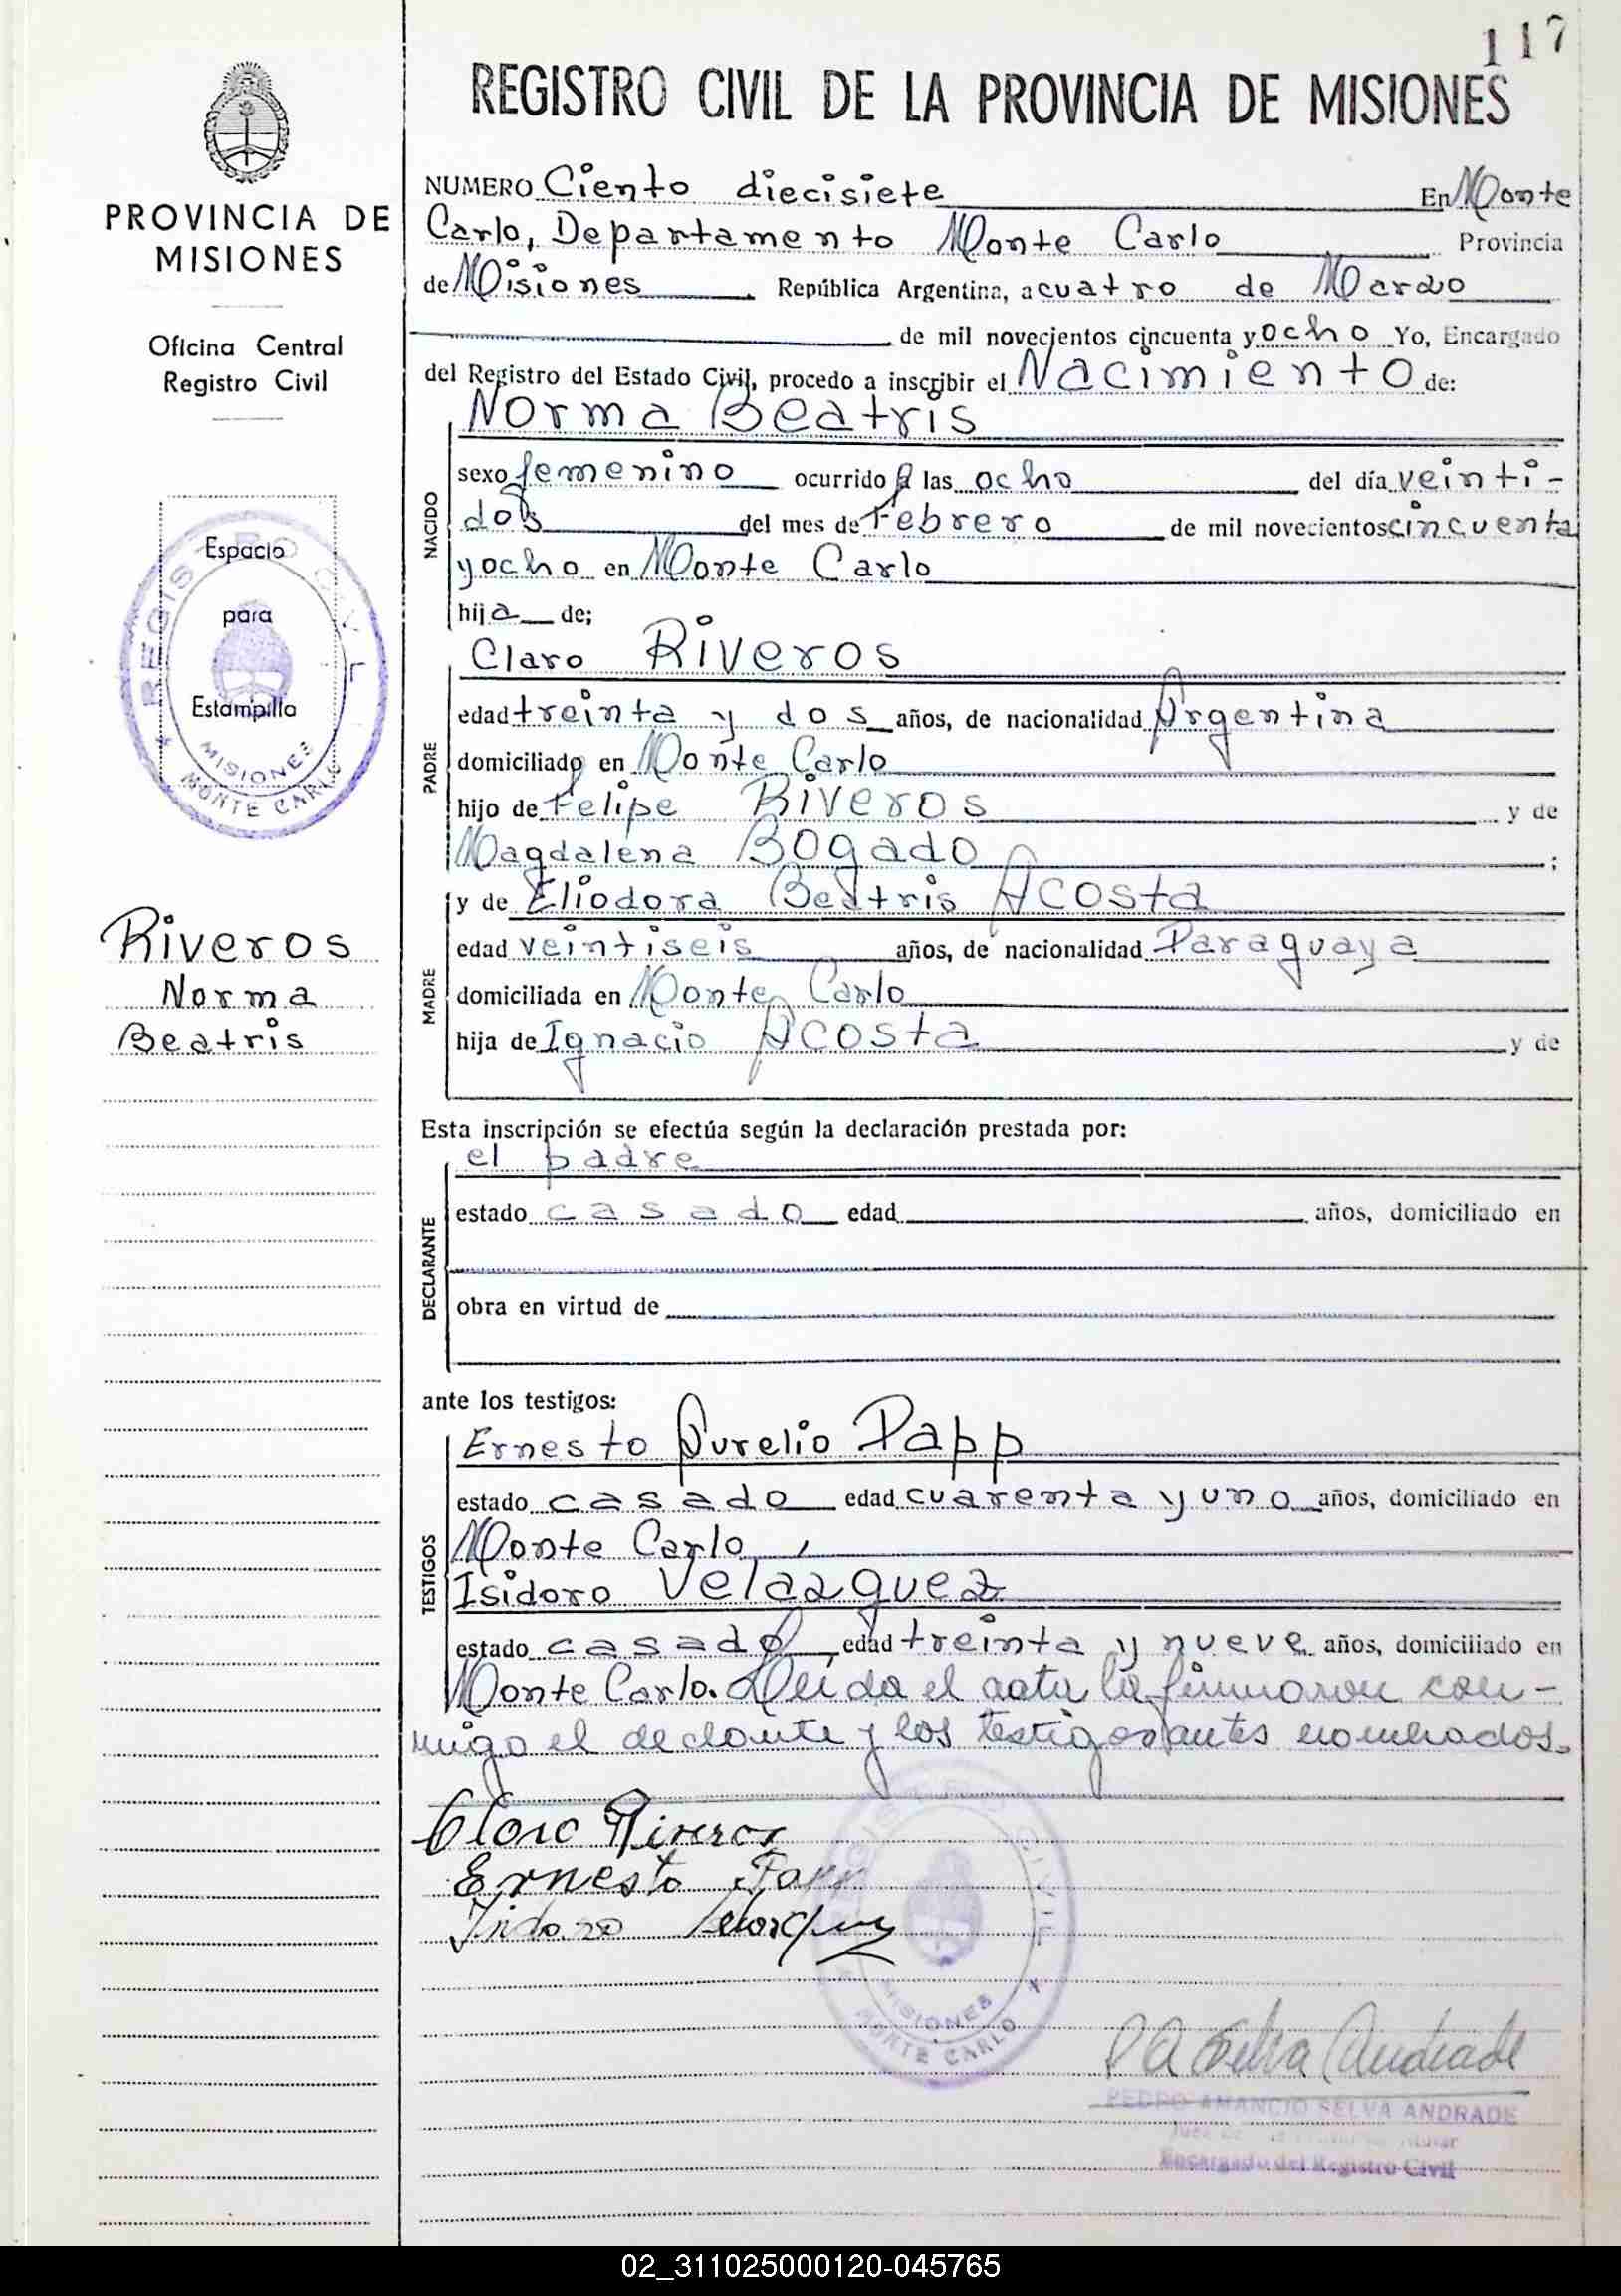 117
REGISTRO CIVIL DE LA PROVINCIA DE MISIONES
PROVINCIA DE
MISIONES
Oficina Central
Registro Civil
Espacio
para
Estampilla
REGISTRO CIVIL
MISIONES
MONTE CARLO
Riveros
Norma
Beatris
NUMERO Ciento diecisiete En Monte
Carlo, Departamento Monte Carlo Provincia
de Misiones República Argentina, a cuatro de Marzo
de mil novecientos cincuenta y ocho Yo, Encargado
del Registro del Estado Civil, procedo a inscribir el Nacimiento de:
NACIDO
Norma Beatris
sexo femenino ocurrido a las ocho del día veinti-
dos del mes de Febrero de mil novecientos cincuenta
y ocho en Monte Carlo
hija de;
PADRE
Claro Riveros
edad treinta y dos años, de nacionalidad Argentina
domiciliado en Monte Carlo
hijo de Felipe Riveros y de
Magdalena Bogado ;
MADRE
y de Eliodora Beatris Acosta
edad veintiseis años, de nacionalidad Paraguaya
domiciliada en Monte Carlo
hija de Ignacio Acosta y de
Esta inscripción se efectúa según la declaración prestada por:
DECLARANTE
el padre
estado casado edad años, domiciliado en
obra en virtud de
ante los testigos:
TESTIGOS
Ernesto Aurelio Papp
estado casado edad cuarenta y uno años, domiciliado en
Monte Carlo,
Isidoro Velazquez
estado casado, edad treinta y nueve años, domiciliado en
Monte Carlo. Leida el acta la firmaron con-
migo el declante y los testigos antes nombrados.
Claro Riveros
Ernesto Papp
Isidoro Velasquez
REGISTRO CIVIL
MISIONES
MONTE CARLO
P A Selva Andrade
PEDRO AMANCIO SELVA ANDRADE
Juez de
Encargado del Registro Civil
02_311025000120-045765